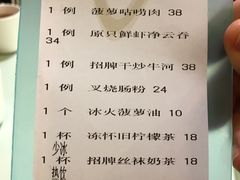 1 例 菠萝咕唠肉 38
1 例 原只鲜虾净云吞
34
1 例 招牌干炒牛河 38
1 例 叉烧肠粉 24
1 个 冰火菠萝油 10
1 杯 冻怀旧柠檬茶 18
少冰
1 杯 招牌丝袜奶茶 18
热饮